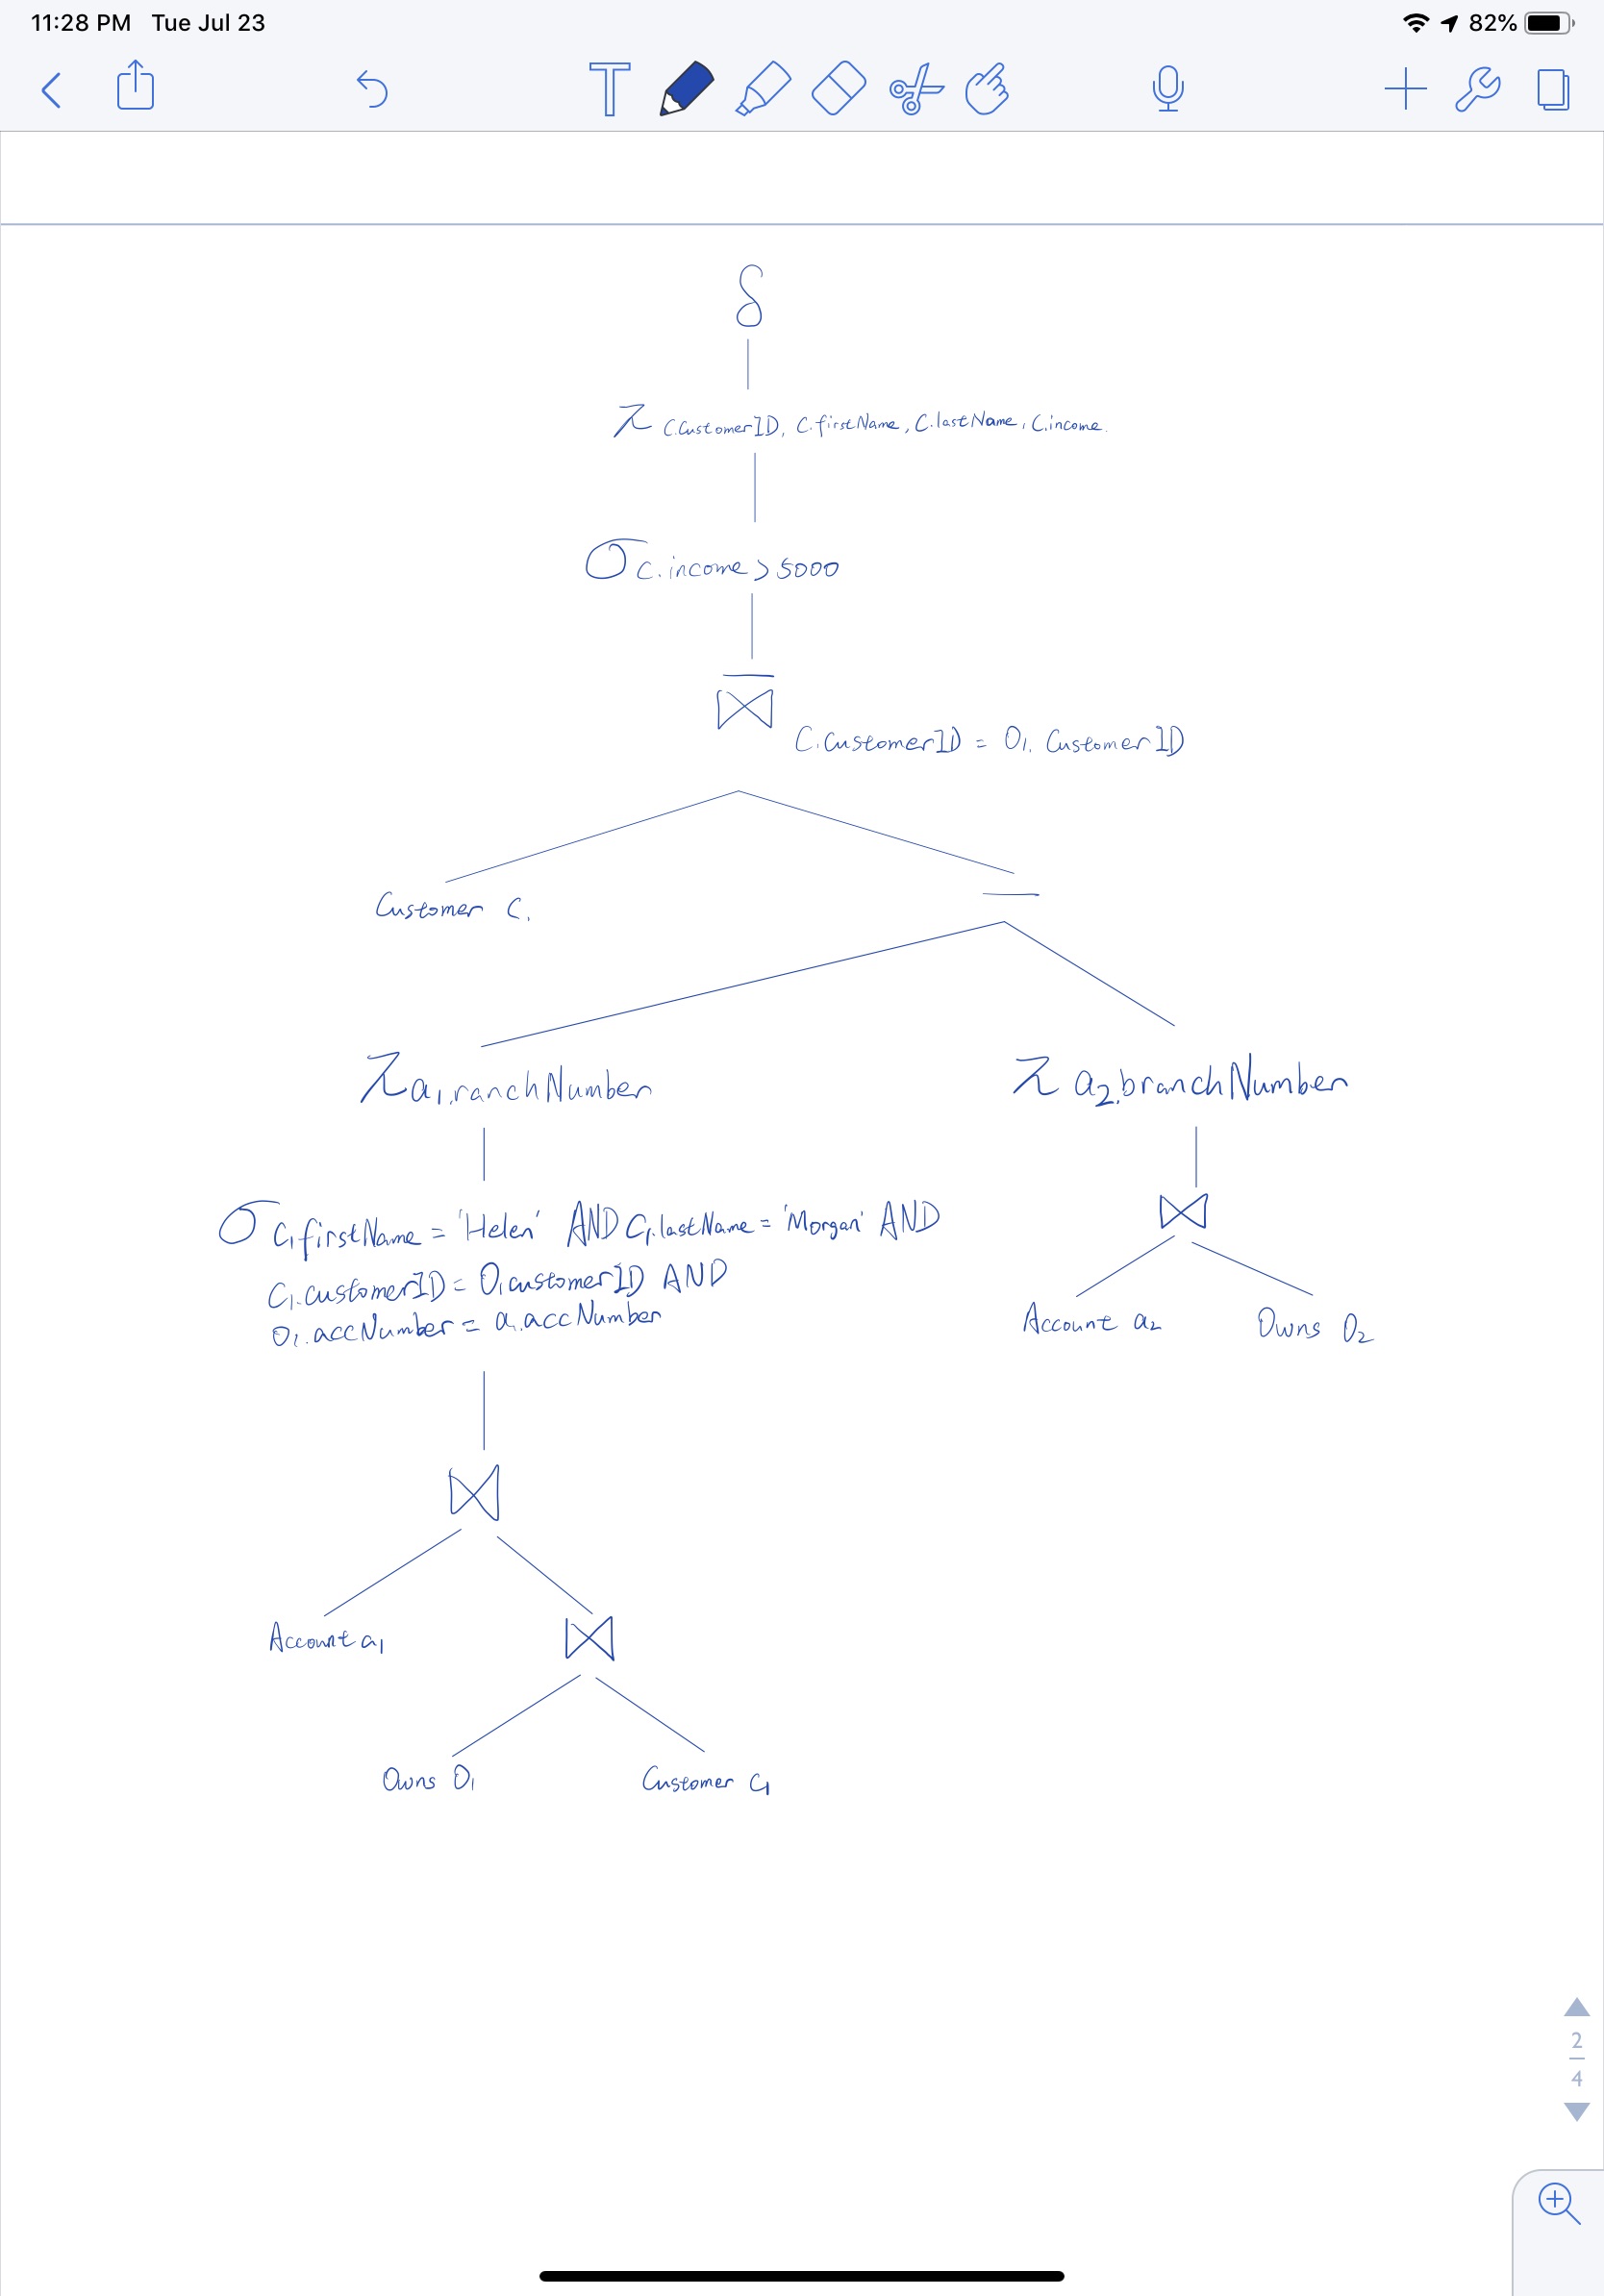 11:28 PM Tue Jul 23
82%
T
δ
π C.CustomerID, C.firstName, C.lastName, C.income.
σ C.income > 5000
⋈
C.CustomerID = O1. CustomerID
Customer C.
—
π a1.ranchNumber
π a2.branchNumber
σ C1firstName = 'Helen' AND C1.lastName = 'Morgan' AND
C1.customerID = O1customerID AND
O1.accNumber = a1.accNumber
⋈
Account a2 Owns O2
⋈
Account a1
⋈
Owns O1 Customer C1
2
4